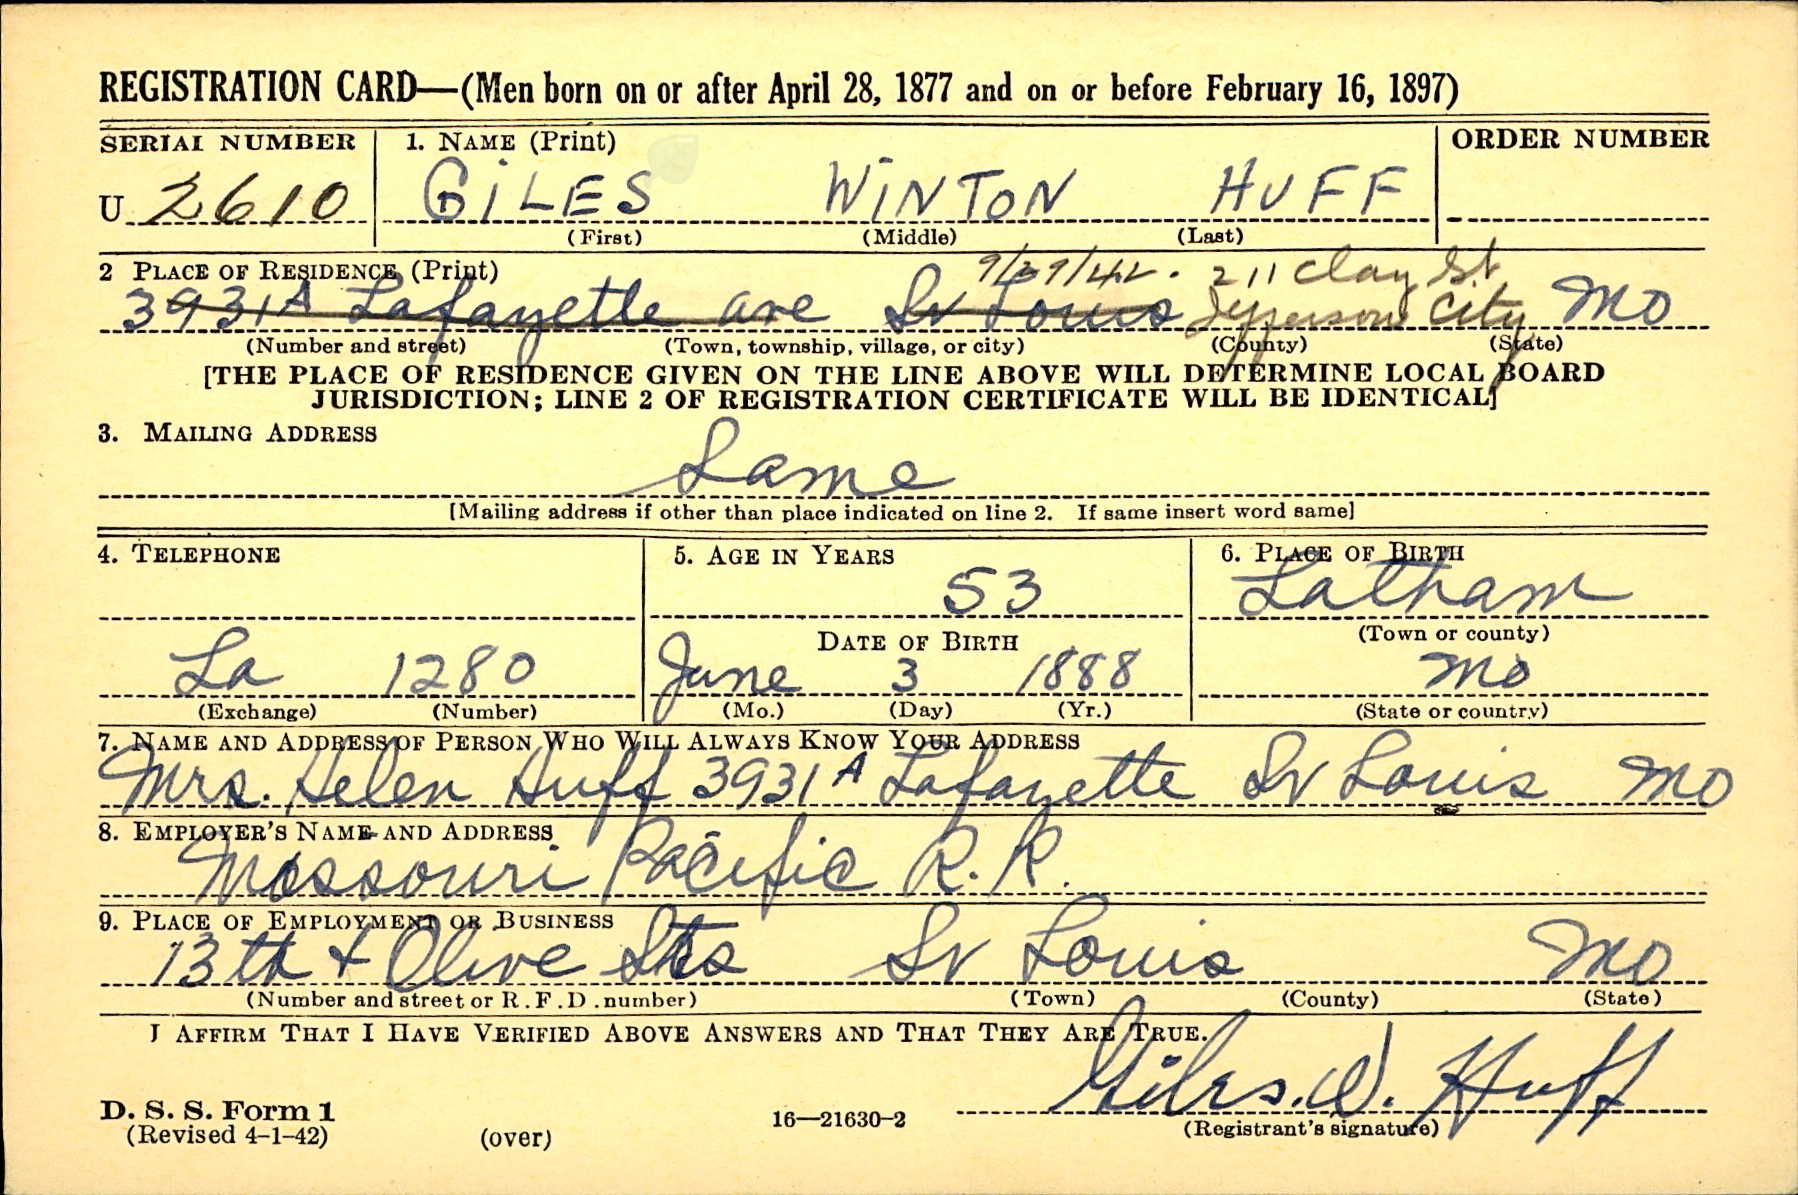 REGISTRATION CARD—(Men born on or after April 28, 1877 and on or before February 16, 1897)
SERIAL NUMBER 1. NAME (Print) ORDER NUMBER
U 2610 GiLES WiNTON HUFF
(First) (Middle) (Last)
2 PLACE OF RESIDENCE (Print) 9/29/42. 211 Clay St
3931A Lafayette ave St Louis Jefferson City Mo
(Number and street) (Town, township, village, or city) (County) (State)
[THE PLACE OF RESIDENCE GIVEN ON THE LINE ABOVE WILL DETERMINE LOCAL BOARD
JURISDICTION; LINE 2 OF REGISTRATION CERTIFICATE WILL BE IDENTICAL]
3. MAILING ADDRESS
Same
[Mailing address if other than place indicated on line 2. If same insert word same]
4. TELEPHONE 5. AGE IN YEARS 6. PLACE OF BIRTH
53 Latham
DATE OF BIRTH (Town or county)
La 1280 June 3 1888 Mo
(Exchange) (Number) (Mo.) (Day) (Yr.) (State or country)
7. NAME AND ADDRESS OF PERSON WHO WILL ALWAYS KNOW YOUR ADDRESS
Mrs. Helen Huff 3931A Lafayette St Louis Mo
8. EMPLOYER'S NAME AND ADDRESS
Missouri Pacific R.R.
9. PLACE OF EMPLOYMENT OR BUSINESS
13th + Olive Sts St Louis Mo
(Number and street or R.F.D. number) (Town) (County) (State)
I AFFIRM THAT I HAVE VERIFIED ABOVE ANSWERS AND THAT THEY ARE TRUE.
Giles. W. Huff
D. S. S. Form 1
(Revised 4-1-42) (over) 16—21630-2 (Registrant's signature)